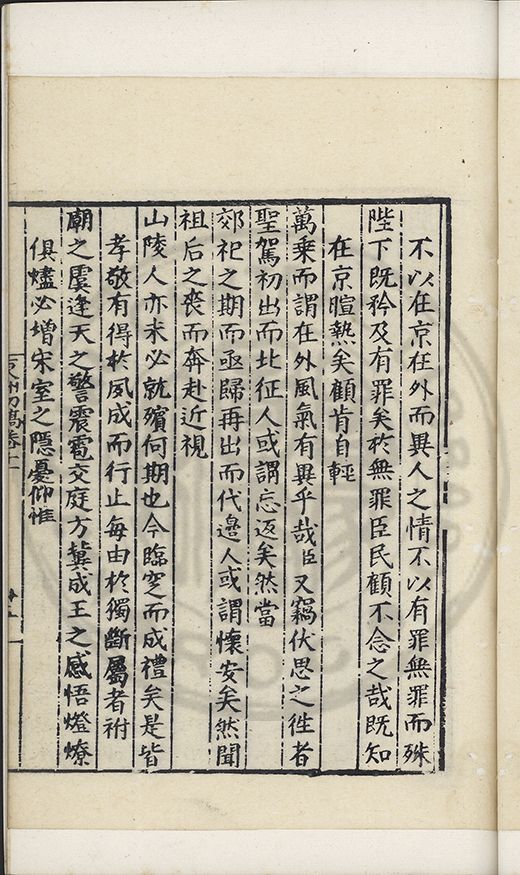 不以在京在外而異人之情不以有罪無罪而殊
陛下既矜及有罪矣於無罪臣民顧不念之哉既知
在京暄熱矣顧肯自輕
萬乘而謂在外風氣有異乎哉臣又竊伏思之徃者
聖駕初出而北征人或謂忘返矣然當
郊祀之期而亟歸再出而代邊人或謂懷安矣然聞
祖后之喪而奔赴近視
山陵人亦未必就殯何期也今臨穵而成禮矣是皆
孝敬有得扵夙成而行止每由扵獨斷屬者祔
廟之震逢天之警震雹交庭方冀成王之感悟燈燎
俱燼必增宋室之隱憂仰惟